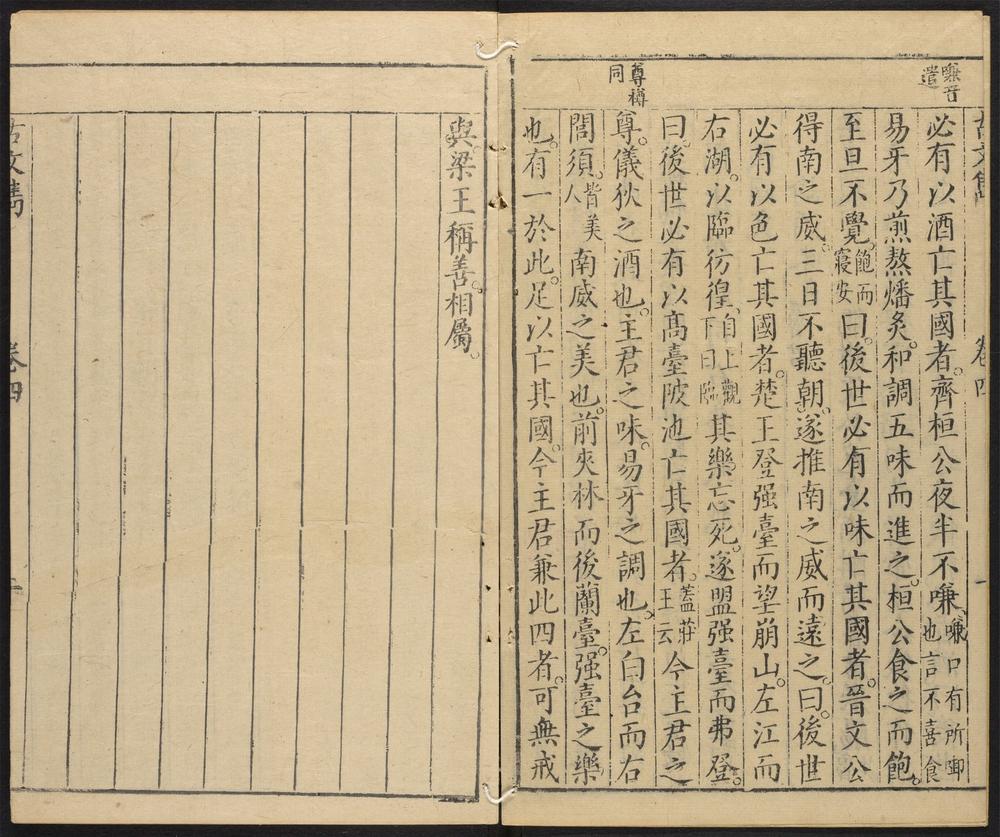 嗛音
遣
尊樽
同
必有以酒亡其國者齊桓公夜半不嗛嗛口有所啣也言不喜食
易牙乃煎熬燔炙和調五味而進之桓公食之而飽
至旦不覺飽而寢安曰後世必有以味亡其國者晉文公
得南之威三日不聽朝遂推南之威而遠之曰後世
必有以色亡其國者楚王登强臺而望崩山左江而
右湖以臨彷徨自上觀下曰臨其樂忘死遂盟强臺而弗登
曰後世必有以高臺陂池亡其國者蓋莊王云今主君之
尊儀狄之酒也主君之味易牙之調也左白台而右
閭須皆美人南威之美也前夾林而後蘭臺强臺之樂
也有一於此足以亡其國今主君兼此四者可無戒
與梁王稱善相屬
卷四
一
卷四